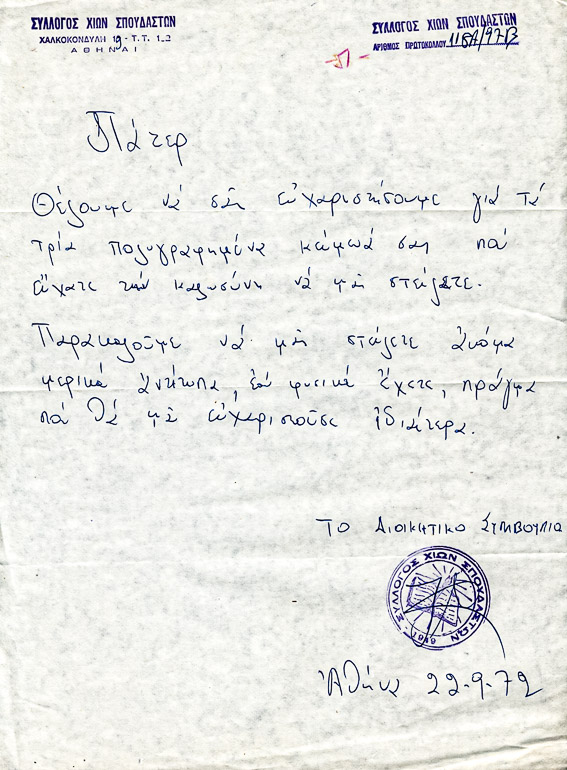 ΣΥΛΛΟΓΟΣ ΧΙΩΝ ΣΠΟΥΔΑΣΤΩΝ
ΧΑΛΚΟΚΟΝΔΥΛΗ 19 - Τ.Τ. 1_2
ΑΘΗΝΑΙ
ΣΥΛΛΟΓΟΣ ΧΙΩΝ ΣΠΟΥΔΑΣΤΩΝ
ΑΡΙΘΜΟΣ ΠΡΩΤΟΚΟΛΛΟΥ
Πάτερ
Θέλουμε νά σᾶς εὐχαριστήσουμε γιά τά
τρία πολυγραφημένα κείμενά σας πού
εἴχατε τήν καλωσύνη νά μᾶς στείλετε.
Παρακαλοῦμε νά μᾶς στείλετε ἀκόμα
μερικά ἀνάτυπα, ἐάν φυσικά ἔχετε, πράγμα
πού θά μᾶς εὐχαριστοῦσε ἰδιαίτερα.
ΤΟ ΔΙΟΙΚΗΤΙΚΟ ΣΥΜΒΟΥΛΙΟ
ΣΥΛΛΟΓΟΣ ΧΙΩΝ ΣΠΟΥΔΑΣΤΩΝ
Ἀθήνα 22-9-72